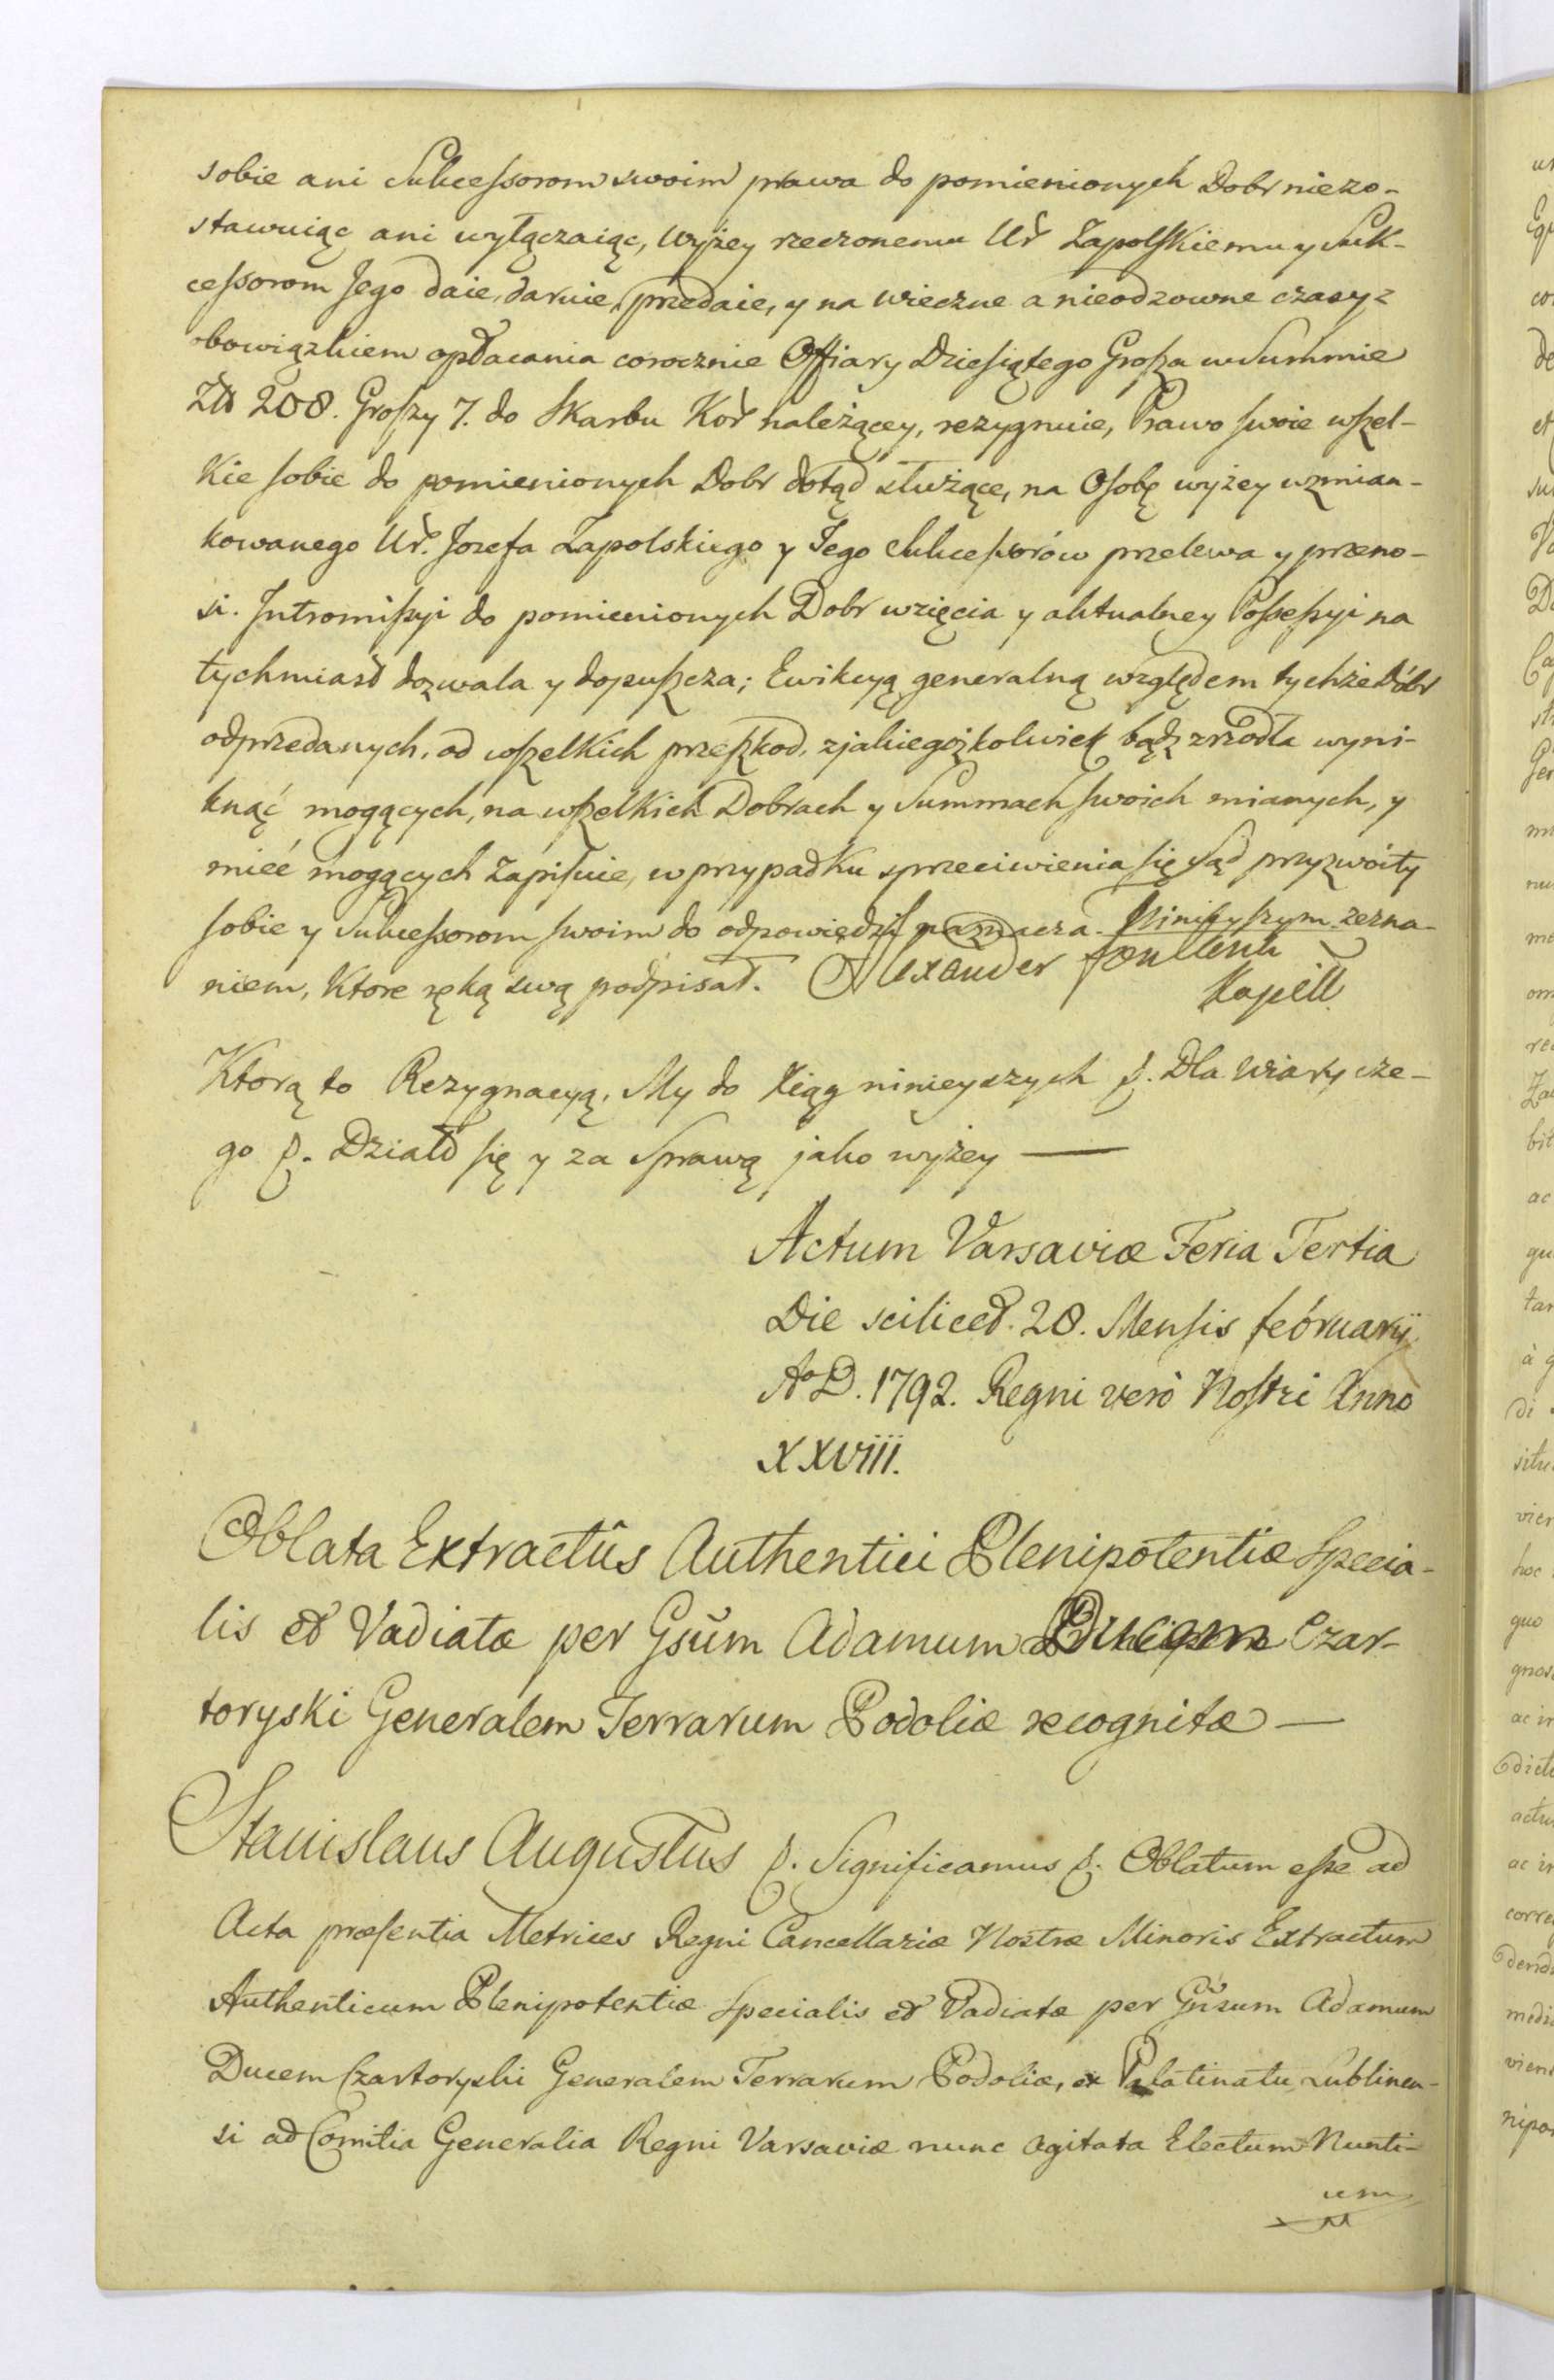 sobie ani Sukcessorom swoim prawa do pomienionych Dobr niezo-
stawuiąc ani wyłączaiąc, wyżey rzeczonemu Ur Zapolskiemu y Suk-
cessorom Jego daie, daruie, przedaie, y na wieczne a nieodzowne czasy z
obowiązkiem opłacania corocznie Offiary Dziesiątego Grosza w Summie
Złł 208. Groszy 7. do Skarbu Kor należącey, rezygnuie, Prawo swoie wszel-
kie sobie do pomienionych Dobr dotąd służące, na Osobę wyżey wzmian-
kowanego Ur. Jozefa Zapolskiego y Jego Sukcessorów przelewa y przeno-
si. Intromissyi do pomienionych Dobr wzięcia y aktualney Possessyi na
tychmiast dozwala y dopuszcza; Ewikcyą generalną względem tychże Dóbr
odprzedanych, od wszelkich przeszkod, z jakiegożkolwiek bądź zrzodła wyni-
knąć mogących, na wszelkich Dobrach y Summach swoich mianych, y
mieć mogących zapisuie, w przypadku sprzeciwienia się Sąd przyzwoity
sobie y Sukcessorom swoim do odpowiedzi naznacza. Ninieyszym zezna-
niem, Ktore ręką swą podpisał. Alexander
Kapell
Ktorą to Rezygnacyą, My do Xiąg ninieyszych p. Dla Wiary cze-
go p. Działo się y za Sprawą jako wyżey —
Actum Varsaviæ Feria Tertia
Die scilicet. 28. Mensis februarÿ
Aº D. 1792. Regni verò Nostri Anno
XXViii.
Oblata Extractûs Authentici Plenipotentiæ Specia-
lis et Vadiatæ per Gsum Adamum Ducem Czar-
toryski Generalem Terrarum Podoliæ recognitæ —
Stanislaus Augustus p. Significamus p. Oblatum esse ad
Acta præsentia Metrices Regni Cancellariæ Nostræ Minoris Extractum
Authenticum Plenipotentiæ Specialis et Vadiatæ per Gnsum Adamum
Ducem Czartoryski Generalem Terrarum Podoliæ, ex Palatinatu Lublinen-
si ad Comitia Generalia Regni Varsaviæ nunc agitata Electum Nunti-
um